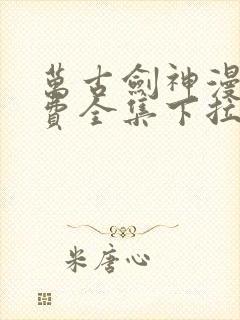 萬古劍神漫
費全集下拉
米唐心